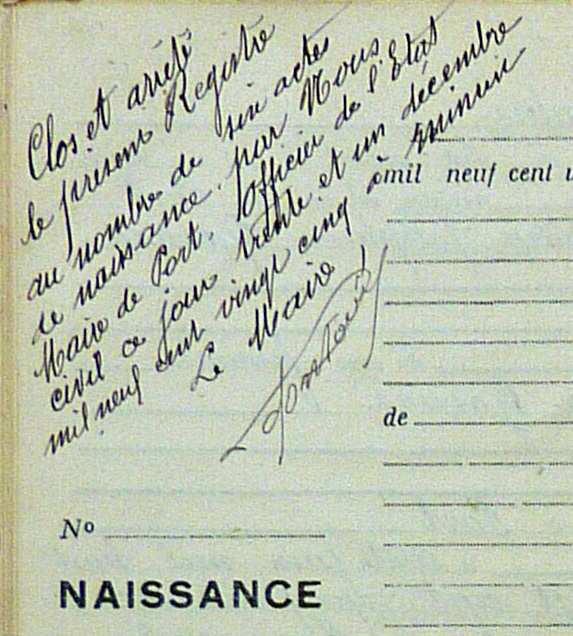 Clos et arrêté
le présent Registre
au nombre de six actes
de naissance, par Nous
Maire de Port, Officier de l'Etat
civil ce jour trente et un décembre
mil neuf cent vingt cinq à minuit
Le Maire
mil neuf cent
de
No
NAISSANCE